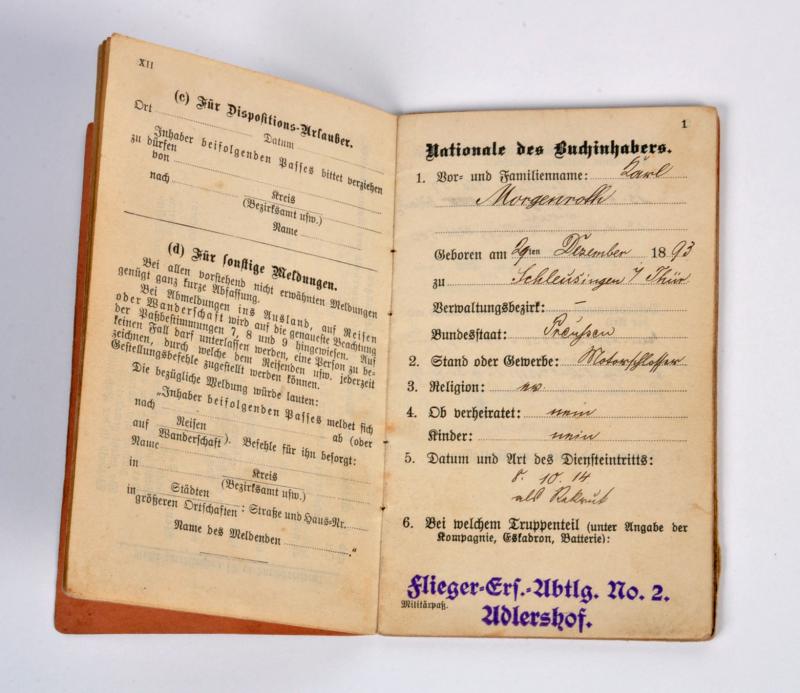 XII
(c) Für Dispositions-Urlauber.
Ort Datum
Inhaber beifolgenden Passes bittet verziehen
zu dürfen
von
nach
Kreis
(Bezirksamt usw.)
Name
(d) Für sonstige Meldungen.
Bei allen vorstehend nicht erwähnten Meldungen
genügt ganz kurze Abfassung.
Bei Abmeldungen ins Ausland, auf Reisen
oder Wanderschaft wird auf die genaueste Beachtung
der Paßbestimmungen 7, 8 und 9 hingewiesen. Auf
keinen Fall darf unterlassen werden, eine Person zu be-
zeichnen, durch welche dem Reisenden usw. jederzeit
Gestellungsbefehle zugestellt werden können.
Die bezügliche Meldung würde lauten:
„Inhaber beifolgenden Passes meldet sich
nach ab (oder
Reisen
auf Wanderschaft). Befehle für ihn besorgt:
Name
in Kreis
(Bezirksamt usw.)
in Städten
größeren Ortschaften: Straße und Haus-Nr.
Name des Meldenden ."
1
Nationale des Buchinhabers.
1. Vor- und Familienname: Karl
Morgenroth
Geboren am 29ten Dezember 1893
zu Schleusingen / Thür.
Verwaltungsbezirk: –
Bundesstaat: Preußen
2. Stand oder Gewerbe: Motorschlosser
3. Religion: ev
4. Ob verheiratet: nein
Kinder: nein
5. Datum und Art des Diensteintritts:
8. 10. 14
als Rekrut
6. Bei welchem Truppenteil (unter Angabe der
Kompagnie, Eskadron, Batterie):
Flieger-Ers.-Abtlg. No. 2.
Militärpaß.
Adlershof.